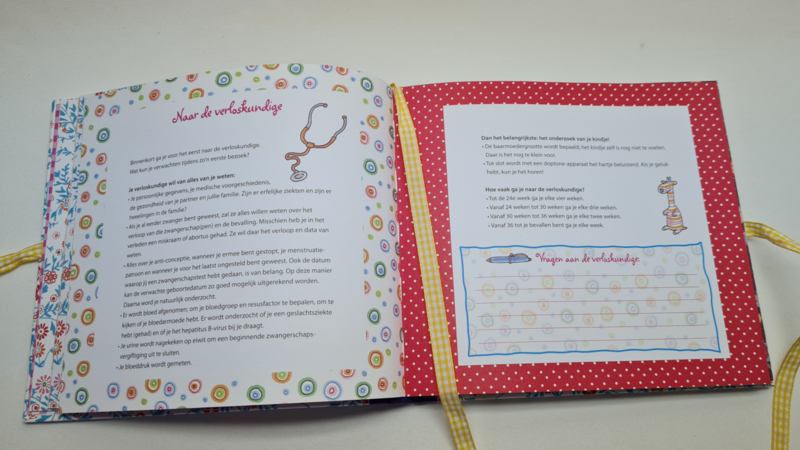 Naar de verloskundige
Binnenkort ga je voor het eerst naar de verloskundige.
Wat kun je verwachten tijdens zo'n eerste bezoek?
Je verloskundige wil van alles van je weten:
• Je persoonlijke gegevens, je medische voorgeschiedenis,
de gezondheid van je partner en jullie familie. Zijn er erfelijke ziekten en zijn er
tweelingen in de familie?
• Als je al eerder zwanger bent geweest, zal ze alles willen weten over het
verloop van die zwangerschap(pen) en de bevalling. Misschien heb je in het
verleden een miskraam of abortus gehad. Ze wil daar het verloop en data van
weten.
• Alles over je anti-conceptie, wanneer je ermee bent gestopt, je menstruatie-
patroon en wanneer je voor het laatst ongesteld bent geweest. Ook de datum
waarop jij een zwangerschapstest hebt gedaan, is van belang. Op deze manier
kan de verwachte geboortedatum zo goed mogelijk uitgerekend worden.
Daarna word je natuurlijk onderzocht.
• Er wordt bloed afgenomen; om je bloedgroep en resusfactor te bepalen, om te
kijken of je bloedarmoede hebt. Er wordt onderzocht of je een geslachtsziekte
hebt (gehad) en of je het hepatitus B-virus bij je draagt.
• Je urine wordt nagekeken op eiwit om een beginnende zwangerschaps-
vergiftiging uit te sluiten.
• Je bloeddruk wordt gemeten.
Dan het belangrijkste: het onderzoek van je kindje!
• De baarmoedergrootte wordt bepaald; het kindje zelf is nog niet te voelen.
Daar is het nog te klein voor.
• Tot slot wordt met een doptone-apparaat het hartje beluisterd. Als je geluk
hebt, kun je het horen!
Hoe vaak ga je naar de verloskundige?
• Tot de 24e week ga je elke vier weken.
• Vanaf 24 weken tot 30 weken ga je elke drie weken.
• Vanaf 30 weken tot 36 weken ga je elke twee weken.
• Vanaf 36 tot je bevallen bent ga je elke week.
Vragen aan de verloskundige: